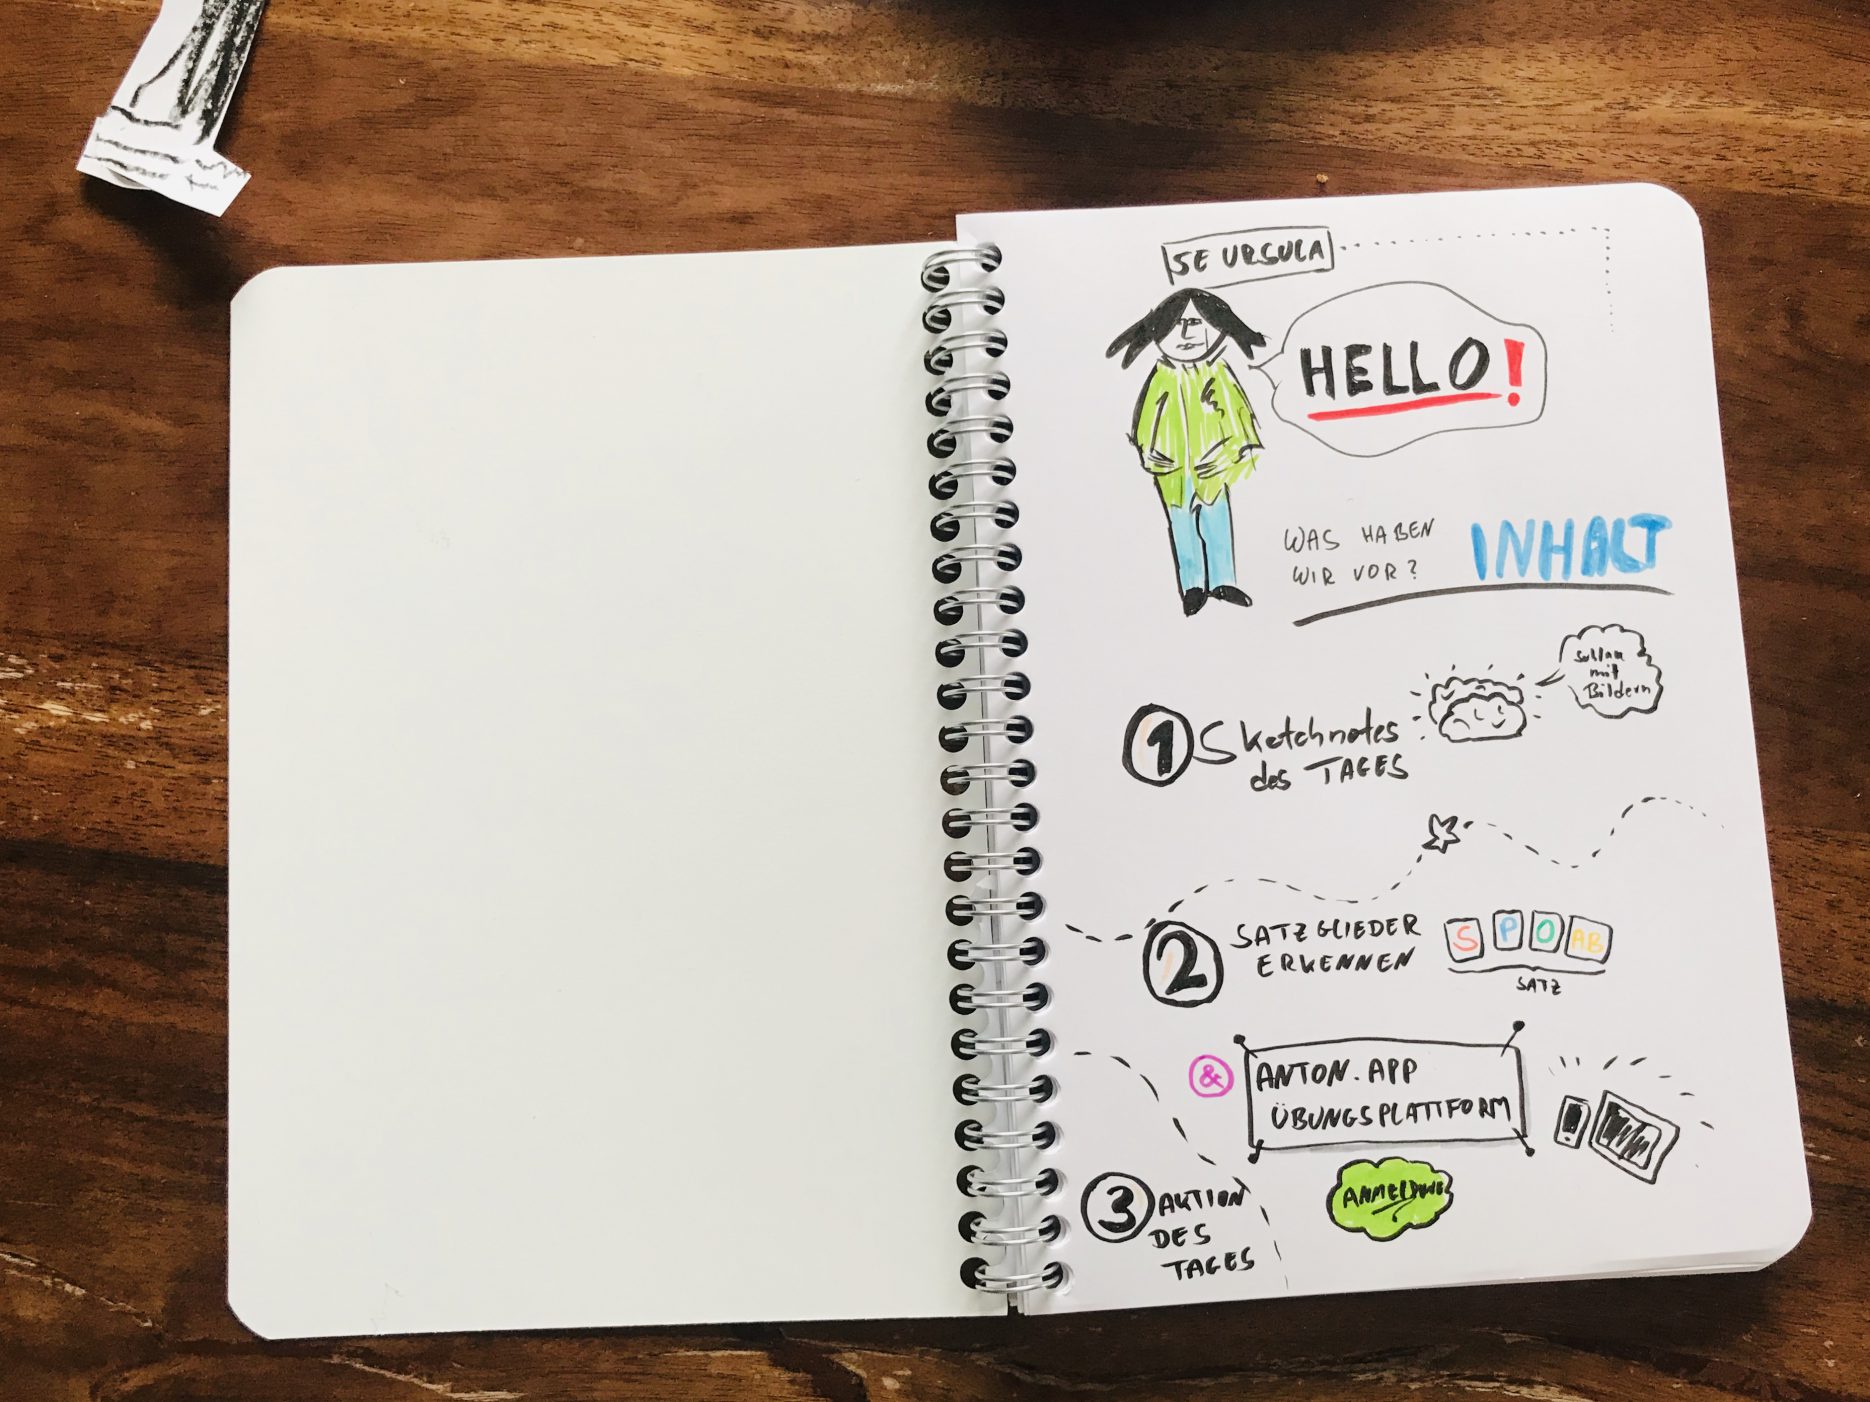 SE URSULA
HELLO!
WAS HABEN
WIR VOR?
INHALT
mit
Bildern
1 Sketchnotes
des TAGES
2 SATZGLIEDER
ERKENNEN
S P O AB
SATZ
& ANTON.APP
ÜBUNGSPLATTFORM
ANMELDUNG
3 AKTION
DES
TAGES